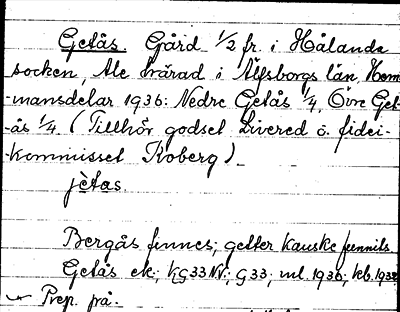 Getås. Gård 1/2 fr. i Hålanda
socken, Ale härad i Älfsborgs län. Hem-
-mansdelar 1936: Nedre Getås 1/4, Övre Get-
-ås 1/4. (Tillhör godset Livered ö. fidei-
-kommisset Koberg)
jètas
Bergås finnes; getter kanske funnits
Getås ek.; KG33NV.; G33; ml. 1936; kb. 1932
Prep. på.